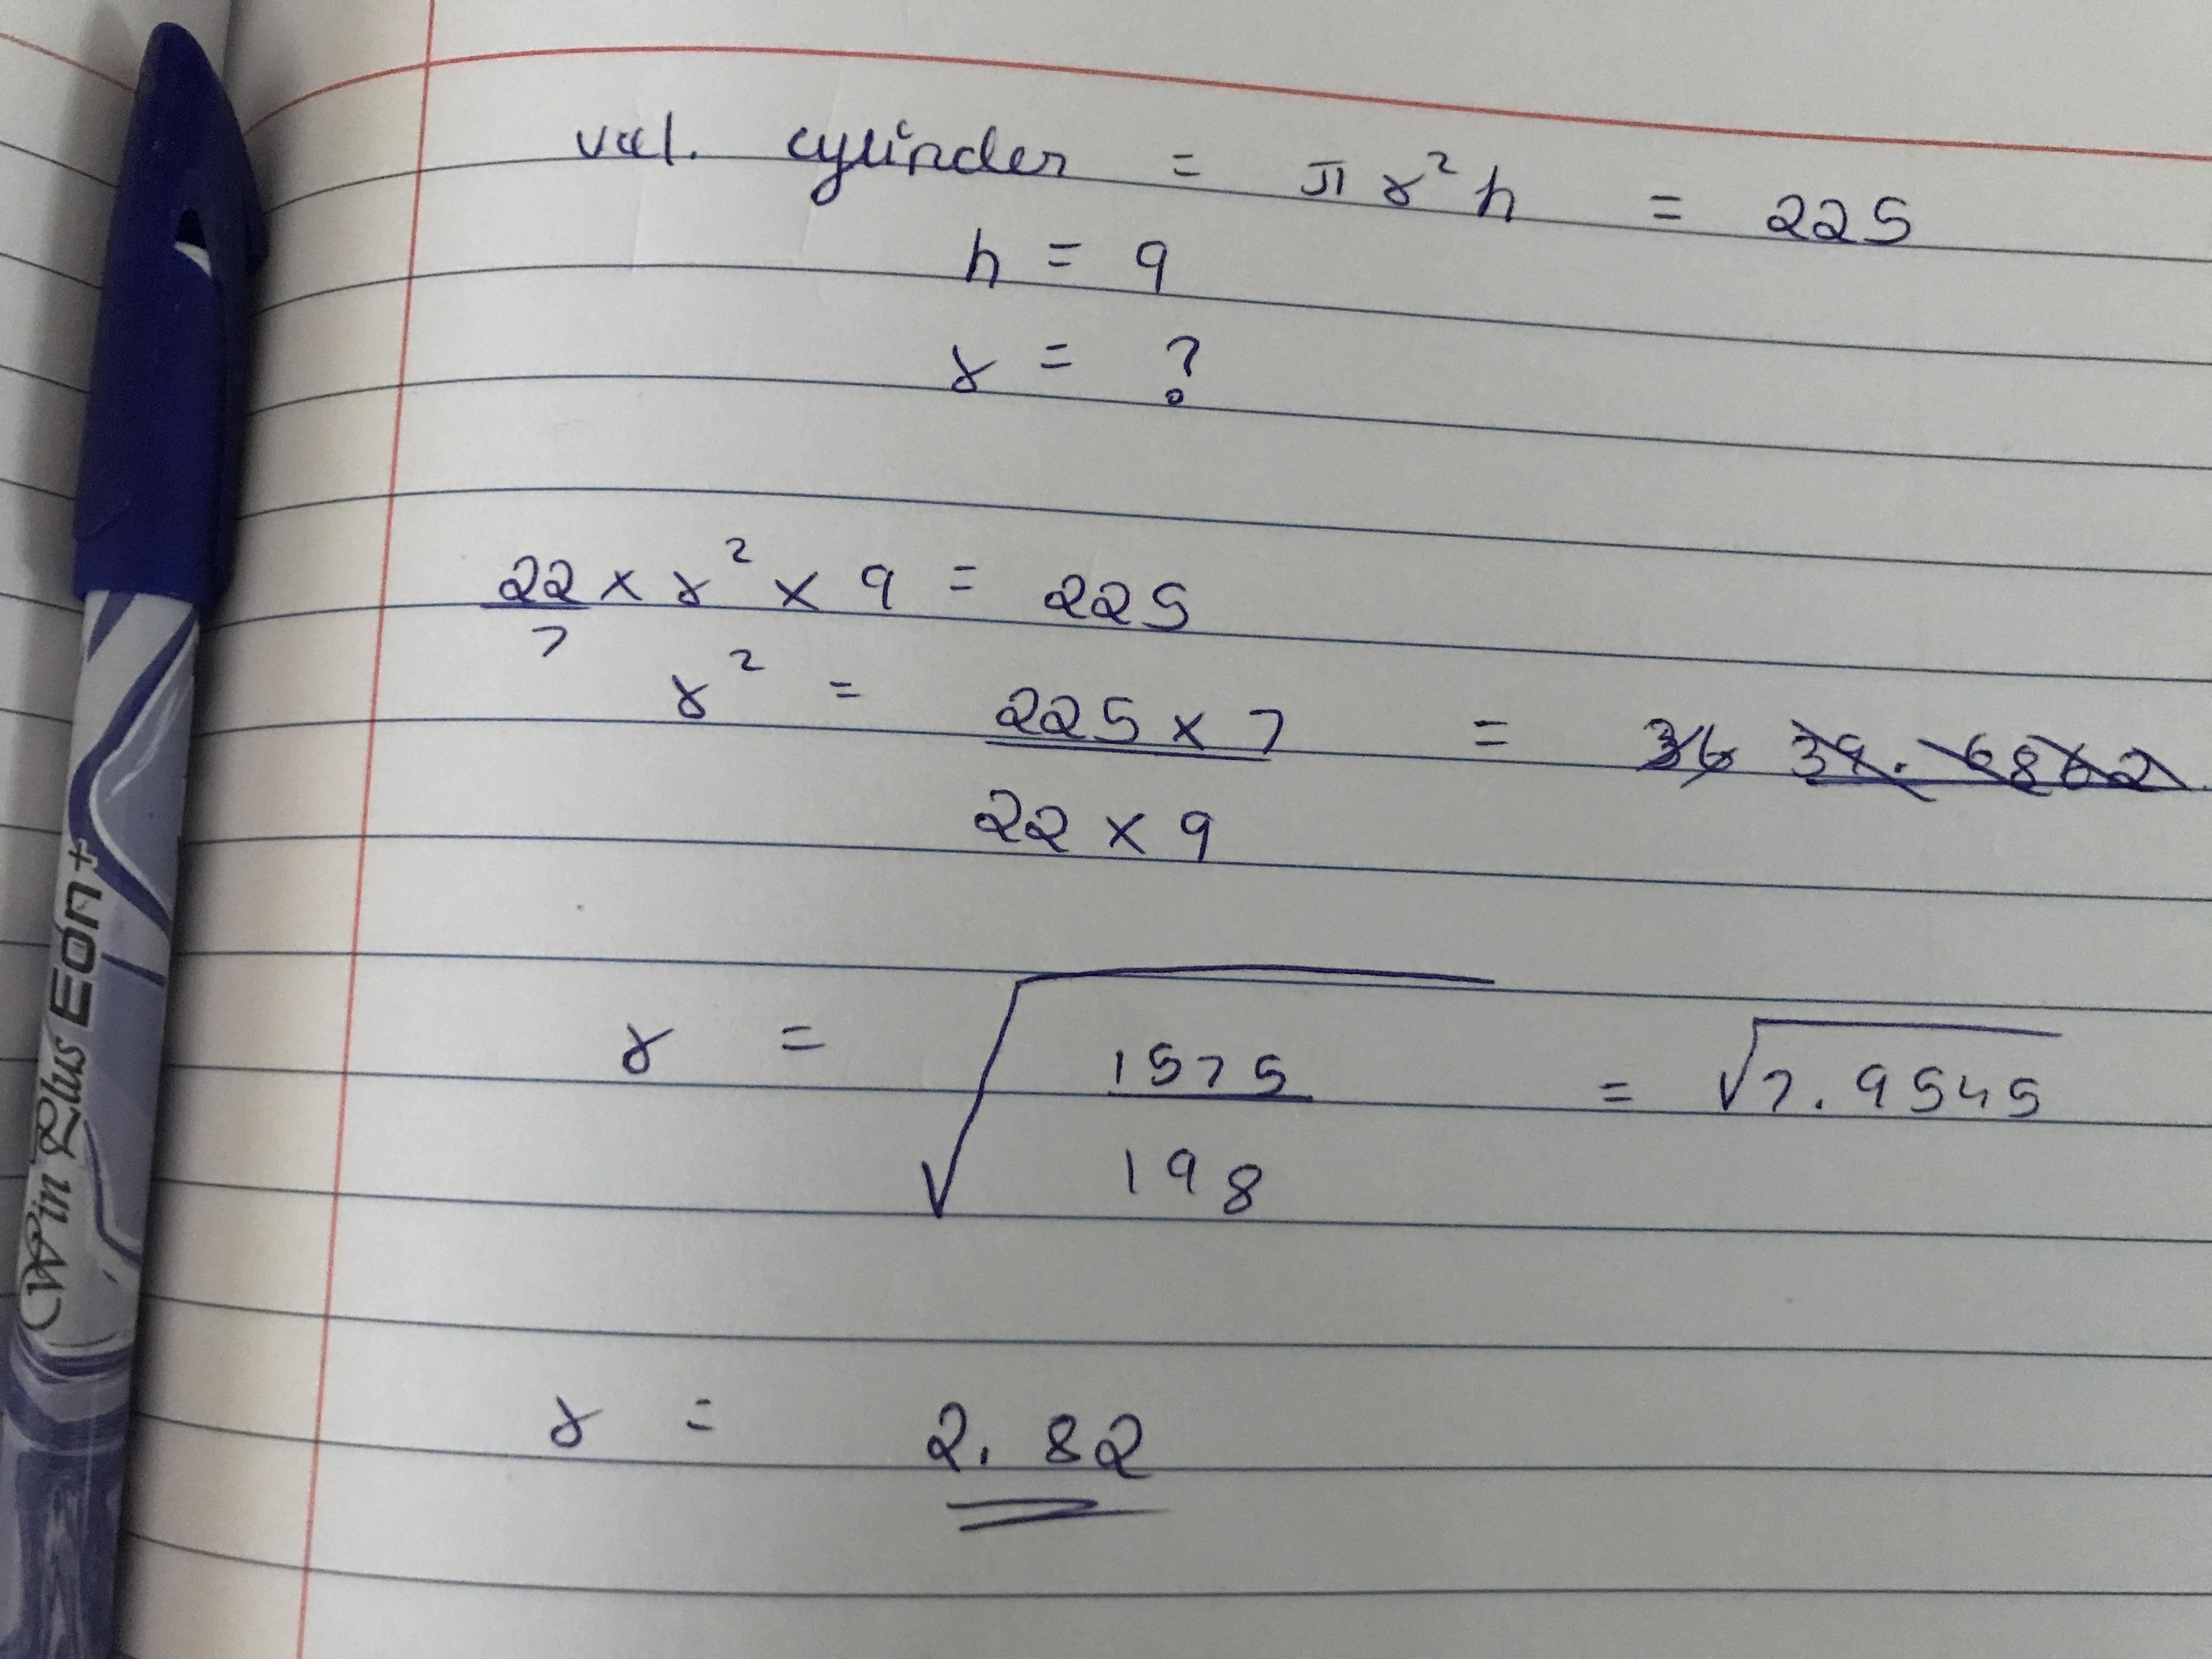 vol. cylinder = πr²h = 225
h = 9
r = ?
22/7 × r² × 9 = 225
r² = 225 × 7 / 22 × 9 =
r = √(1575 / 198) = √7.9545
r = 2.82
Win Plus EON+